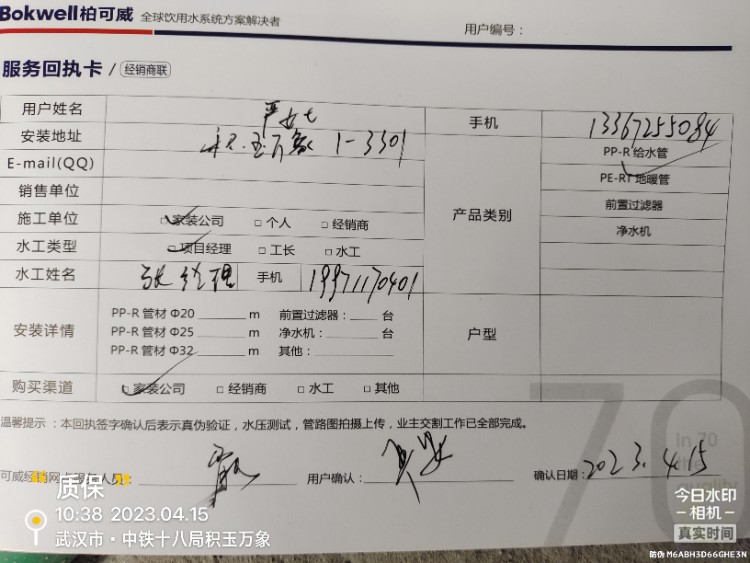 Bokwell柏可威 全球饮用水系统方案解决者
用户编号：
服务回执卡 / 经销商联
用户姓名 严女士 手机 13367255084
安装地址 积玉万象 1-3301 产品类别 PP-R 给水管
E-mail(QQ) PE-RT 地暖管
销售单位 前置过滤器
施工单位 □ 家装公司 □ 个人 □ 经销商 净水机
水工类型 □ 项目经理 □ 工长 □ 水工
水工姓名 张经理 手机 19971170401
安装详情 PP-R 管材 Φ20 m 前置过滤器： 台 户型
PP-R 管材 Φ25 m 净水机： 台
PP-R 管材 Φ32 m 其他：
购买渠道 □ 家装公司 □ 经销商 □ 水工 □ 其他
温馨提示：本回执签字确认后表示真伪验证，水压测试，管路图拍摄上传，业主交割工作已全部完成。
70
In 70
the
quality
可威经销网 人员： 用户确认： 确认日期：2023.4.15
质保
10:38 2023.04.15
武汉市·中铁十八局积玉万象
今日水印
相机
真实时间
防伪 M6ABH3D66GHE3N